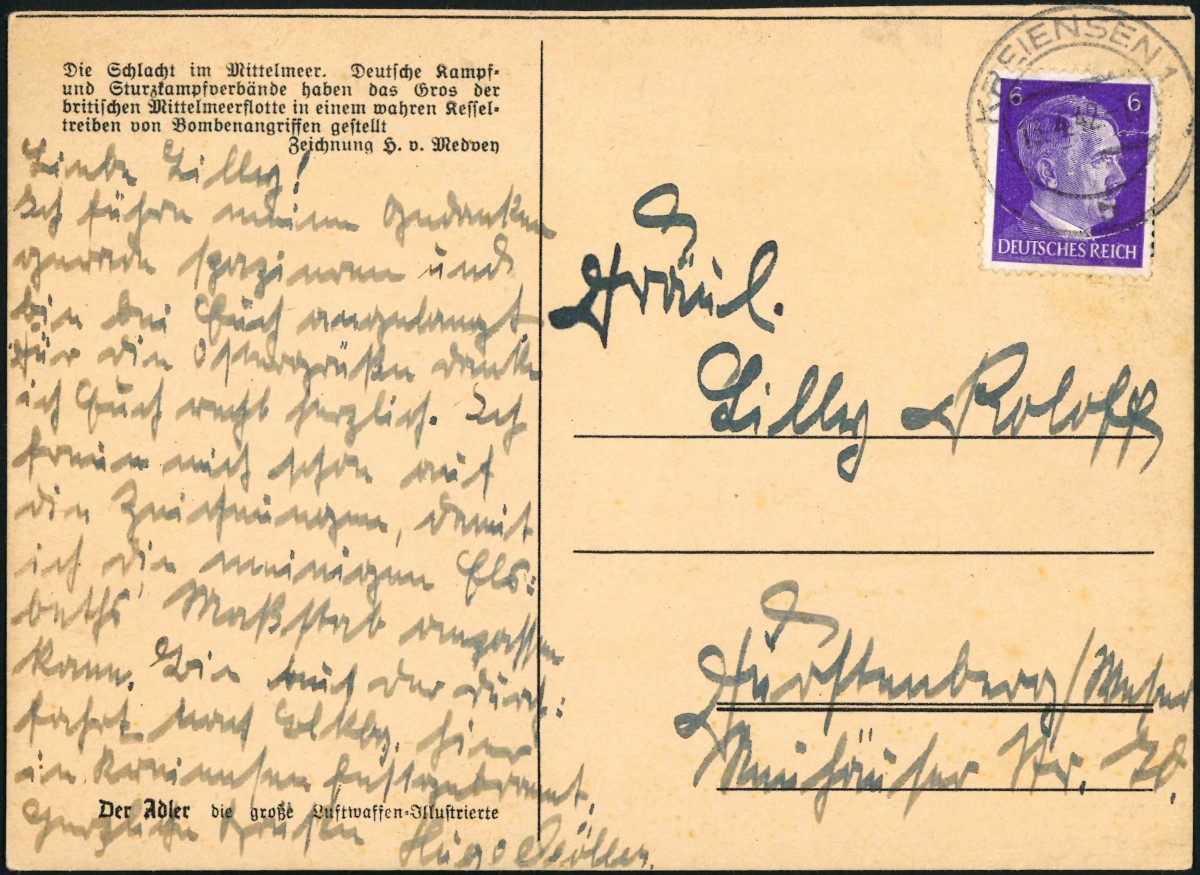 Die Schlacht im Mittelmeer. Deutsche Kampf-
und Sturzkampfverbände haben das Gros der
britischen Mittelmeerflotte in einem wahren Kessel-
treiben von Bombenangriffen gestellt
Zeichnung H. v. Medvey
Liebe Lilly!
Ich führe meine Gedanken
gerade spazieren und
bin bei Euch angelangt.
Für die Ostergrüße danke
ich Euch recht herzlich. Ich
freue mich schon auf
die Zeichnungen, damit
ich die meinigen Els-
beths Maßstab anpassen
kann. Bin auf der Durch-
fahrt nach hier
in Kreiensen
Herzliche Grüße Hugo
Der Adler die große Luftwaffen-Illustrierte
KREIENSEN 1
42
6 6
DEUTSCHES REICH
Fräul.
Lilly Roloff
Fürstenberg/Weser
Neuhäuser Str.